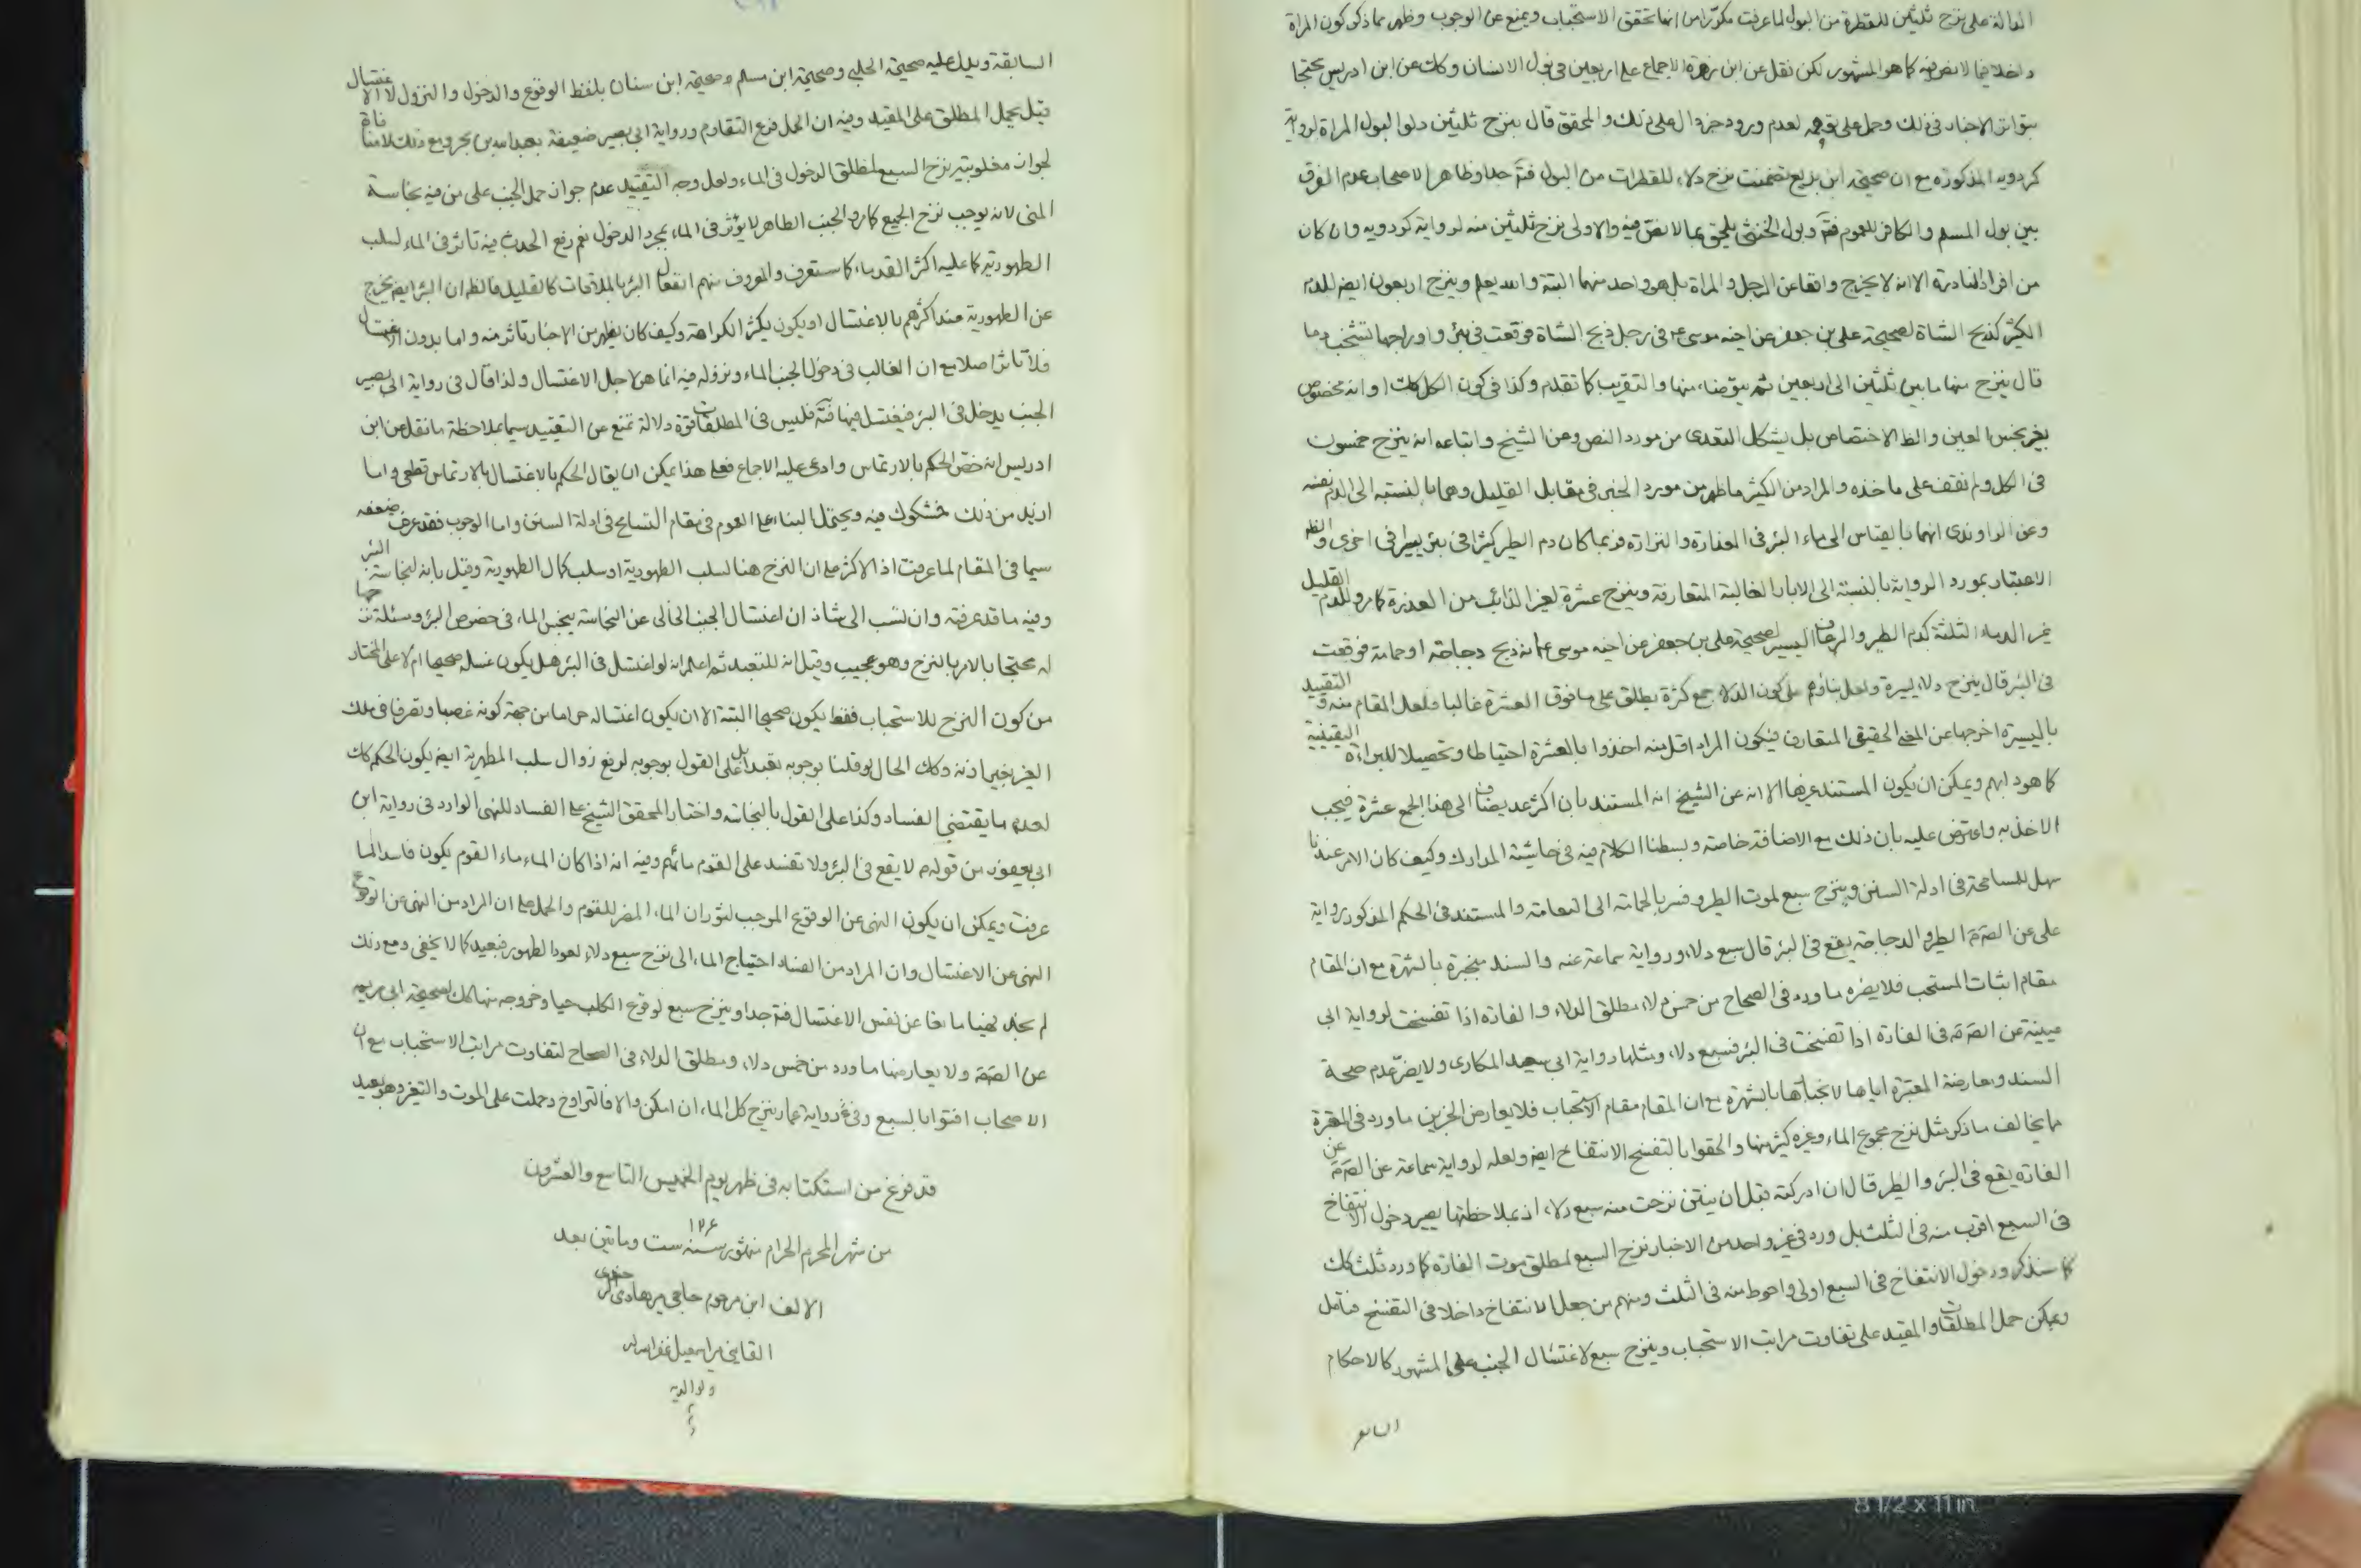 الدالة على نزح ثلثين للقطرة من البول لما عرفت مكررا من انها تحقق الاستحباب ويمنع عن الوجوب وظهر مما ذكر كون المراة
داخلا فيما لا نص فيه كما هو المشهور لكن نقل عن ابن زهرة الاجماع على اربعين فى بول الانسان وكك عن ابن ادريس محتجا
بتواتر الاخبار فى ذلك وحمل على لعدم ورود خبر دال على ذلك والمحقق قال ينزح ثلثين دلوا لبول المراة لرواية
كردويه المذكورة مع ان صحيحة ابن بزيع تضمنت نزح دلاء للقطرات من البول فتم جدا وظاهر الاصحاب عدم الفرق
بين بول المسلم والكافر للعموم فتم وبول الخنثى يلحق بما لا نص فيه والاولى نزح ثلثين منه لرواية كردويه وان كان
من افراد النادرة الا انه لا يخرج واقعا عن الرجل والمراة بل هو واحد منهما البتة والله يعلم وينزح اربعون ايضا للدم
الكثير كذبح الشاة لصحيحة على بن جعفر عن اخيه موسى ع فى رجل ذبح الشاة فوقعت فى بئر واوداجها تشخب دما
قال ينزح منها ما بين ثلثين الى اربعين ثم يتوضاء منها والتقريب كما تقدم وكذا فى كون الكل كك او انه مخصوص
بغير نجس العين والظ الاختصاص بل يشكل التعدى من مورد النص وعن الشيخ واتباعه انه ينزح خمسون
فى الكل ولم نقف على ماخذه والمراد من الكثير ما ظهر من مورد الخبر فى مقابل القليل وهما بالنسبة الى الدم نفسه
وعن الراوندى انهما بالقياس الى ماء البئر فى الغزارة والنزارة فربما كان دم الطير كثيرا فى بئر يسيرا فى اخرى والظ
الاعتبار بمورد الرواية بالنسبة الى الابار الغالبة المتعارفة وينزح عشرة لغير الذائب من العذرة كما مر وللدم القليل
غير الدماء الثلثة كدم الطير والرعاف اليسير لصحيحة على بن جعفر عن اخيه موسى ع انه ذبح دجاجة او حمامة فوقعت
فى البئر قال ينزح دلاء يسيرة ولعل بناؤهم على كون الدلاء جمع كثرة يطلق على ما فوق العشرة غالبا فلعل المقام منه و التقييد
باليسيرة اخرجها عن المعنى الحقيقى المتعارف فيكون المراد اقل منه اخذوا بالعشرة احتياطا وتحصيلا للبراءة اليقينية
كما هو دابهم ويمكن ان يكون المستند غيرها الا انه عن الشيخ انه المستند بان اكثر عدد يضاف الى هذا الجمع عشرة فيجب
الاخذ به واعترض عليه بان ذلك مع الاضافة خاصة وبسطنا الكلام فيه فى حاشية المدارك وكيف كان الامر عندنا
سهل للمسامحة فى ادلة السنن وينزح سبع لموت الطير وفسر بالحمامة الى النعامة والمستند فى الحكم المذكور رواية
على عن الصم الطير والدجاجة يقع فى البئر قال سبع دلاء ورواية سماعة عنه والسند منجبرة بالشهرة مع ان المقام
مقام اثبات المستحب فلا يضره ما ورد فى الصحاح من خمس دلاء مطلق الدلاء والفارة اذا تفسخت لرواية ابى
عيينة عن الصم فى الفارة اذا تفسخت فى البئر فسبع دلاء ومثلها رواية ابى سعيد المكارى ولا يضر عدم صحة
السند ومعارضة المعتبرة اياها لانجبارها بالشهرة مع ان المقام مقام الاستحباب فلا يعارض الخبرين ما ورد فى المعتبرة
ما يخالف ما ذكر مثل نزح مجموع الماء وغيره كثير منها والحقوا بالتفسخ الانتفاخ ايضا ولعله لرواية سماعة عن الصم عن
الفارة يقع فى البئر والطير قال ان ادركته قبل ان ينتن نزحت منه سبع دلاء اذ بملاحظتها يصير دخول الانتفاخ
فى السبع اقرب منه فى الثلث بل ورد فى غير واحد من الاخبار نزح السبع لمطلق موت الفارة كما ورد ثلث كك
كما سنذكر ودخول الانتفاخ فى السبع اولى واحوط منه فى الثلث ومنهم من جعل الانتفاخ داخلا فى التفسخ فتامل
ويمكن حمل المطلقات والمقيد على تفاوت مراتب الاستحباب وينزح سبع لاغتسال الجنب على المشهور كالاحكام
السابقة ويدل عليه صحيحة الحلبى وصحيحة ابن مسلم وصحيحة ابن سنان بلفظ الوقوع والدخول والنزول لا الاغتسال
قيل يحمل المطلق على المقيد وفيه ان الحمل فرع التقاوم ورواية ابى بصير ضعيفة بعبدالله بن بحر ومع ذلك لا منافاة
لجواز مطلوبية نزح السبع لمطلق الدخول فى الماء ولعل وجه التقييد عدم جواز حمل الجنب على من فيه نجاسة
المنى لانه يوجب نزح الجميع كما مر والجنب الطاهر لا يؤثر فى الماء بمجرد الدخول نعم رفع الحدث فيه تاثر فى الماء لسلب
الطهورية كما عليه اكثر القدماء كما ستعرف والمعروف منهم انفعال البئر بالملاقات كالقليل فالظ ان البئر ايضا يخرج
عن الطهورية عند اكثرهم بالاغتسال او يكون يكثر الكراهة وكيف كان يظهر من الاخبار تاثر منه واما بدون الاغتسال
فلا تاثر اصلا مع ان الغالب فى دخول الجنب الماء ونزوله فيه انما هو لاجل الاغتسال ولذا قال فى رواية ابى بصير
الجنب يدخل فى البئر فيغتسل فيها فتم فليس فى المطلقات قوة دلالة تمنع عن التقييد سيما بملاحظة ما نقل عن ابن
ادريس انه خص الحكم بالارتماس وادعى عليه الاجماع فعلى هذا يمكن ان يقال الحكم بالاغتسال بالارتماس قطعى واما
ازيد من ذلك فمشكوك فيه ويحتمل البناء على العموم فى مقام التسامح فى ادلة السنن واما الوجوب فقد عرفت ضعفه
سيما فى المقام لما عرفت اذ الاكثر على ان النزح هنا لسلب الطهورية او سلب كمال الطهورية وقيل بانه لنجاسة البئر
وفيه ما قد عرفته وان نسب الى شاذ ان اغتسال الجنب الخالى عن النجاسة ينجس الماء فى خصوص البئر ومسئلة نزحها
له محتجا بالامر بالنزح وهو عجيب وقيل انه للتعبد ثم اعلم انه لو اغتسل فى البئر هل يكون غسله صحيحا ام لا على المختار
من كون النزح للاستحباب فقط يكون صحيحا البتة الا ان يكون اغتساله حراما من جهة كونه غصبا وتصرفا فى ملك
الغير بغير اذنه وكك الحال لو قلنا بوجوبه تعبدا بل على القول بوجوبه لرفع زوال سلب المطهرية ايضا يكون الحكم كك
لعدم ما يقتضى الفساد وكذا على القول بالنجاسة واختار المحقق الشيخ على الفساد للنهى الوارد فى رواية ابن
ابى يعفور من قوله ع لا يقع فى البئر ولا تفسد على القوم مائهم وفيه انه اذا كان الماء ماء القوم يكون فاسدا لما
عرفت ويمكن ان يكون النهى عن الوقوع الموجب لثوران الماء المضر للقوم والحمل على ان المراد من النهى عن الوقوع
النهى عن الاغتسال وان المراد من الفساد احتياج الماء الى نزح سبع دلاء لعود الطهور فبعيد كما لا يخفى ومع ذلك
لم نجد نهيا مانعا عن نفس الاغتسال فتم جدا وينزح سبع لوقوع الكلب حيا وخروجه منها كك لصحيحة ابى مريم
عن الصم ولا يعارضها ما ورد من خمس دلاء ومطلق الدلاء فى الصحاح لتفاوت مراتب الاستحباب مع ان
الاصحاب افتوا بالسبع وفى رواية عمار ينزح كل الماء ان امكن والا فالتراوح وحملت على الموت والتغير وهو بعيد
قد فرغ من استكتابه فى ظهر يوم الخميس التاسع والعشرون
من شهر المحرم الحرام من شهور سنه ست وماتين بعد
۱۲۰۶
الالف ابن مرحوم حاجى مير هادى
القاينى مير اسمعيل غفر الله له
ولوالديه